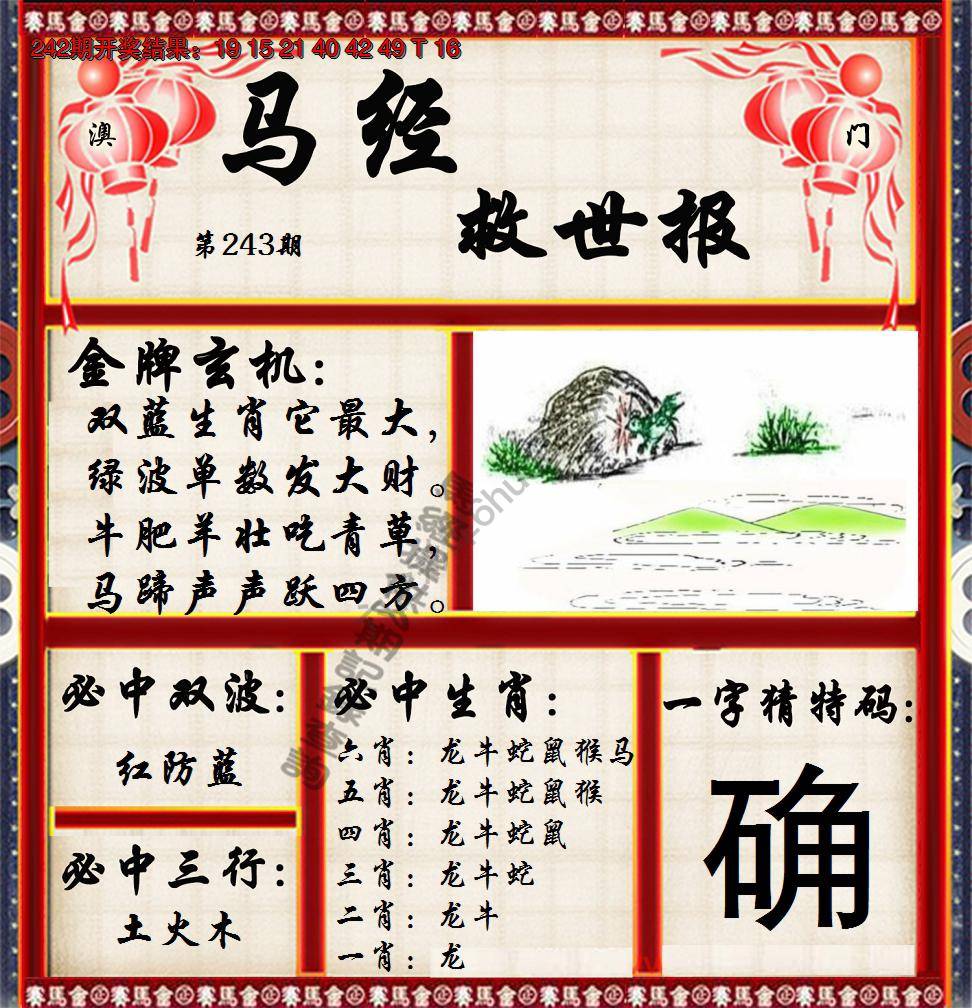 赛馬會 赛馬會 赛馬會 赛馬會 赛馬會 赛馬會 赛馬會
242期开奖结果：19 15 21 40 42 49 T 16
澳
门
马经
救世报
第243期
金牌玄机：
双蓝生肖它最大，
绿波单数发大财。
牛肥羊壮吃青草，
马蹄声声跃四方。
必中双波：
红防蓝
必中三行：
土火木
必中生肖：
六肖：龙牛蛇鼠猴马
五肖：龙牛蛇鼠猴
四肖：龙牛蛇鼠
三肖：龙牛蛇
二肖：龙牛
一肖：龙
一字猜特码：
确